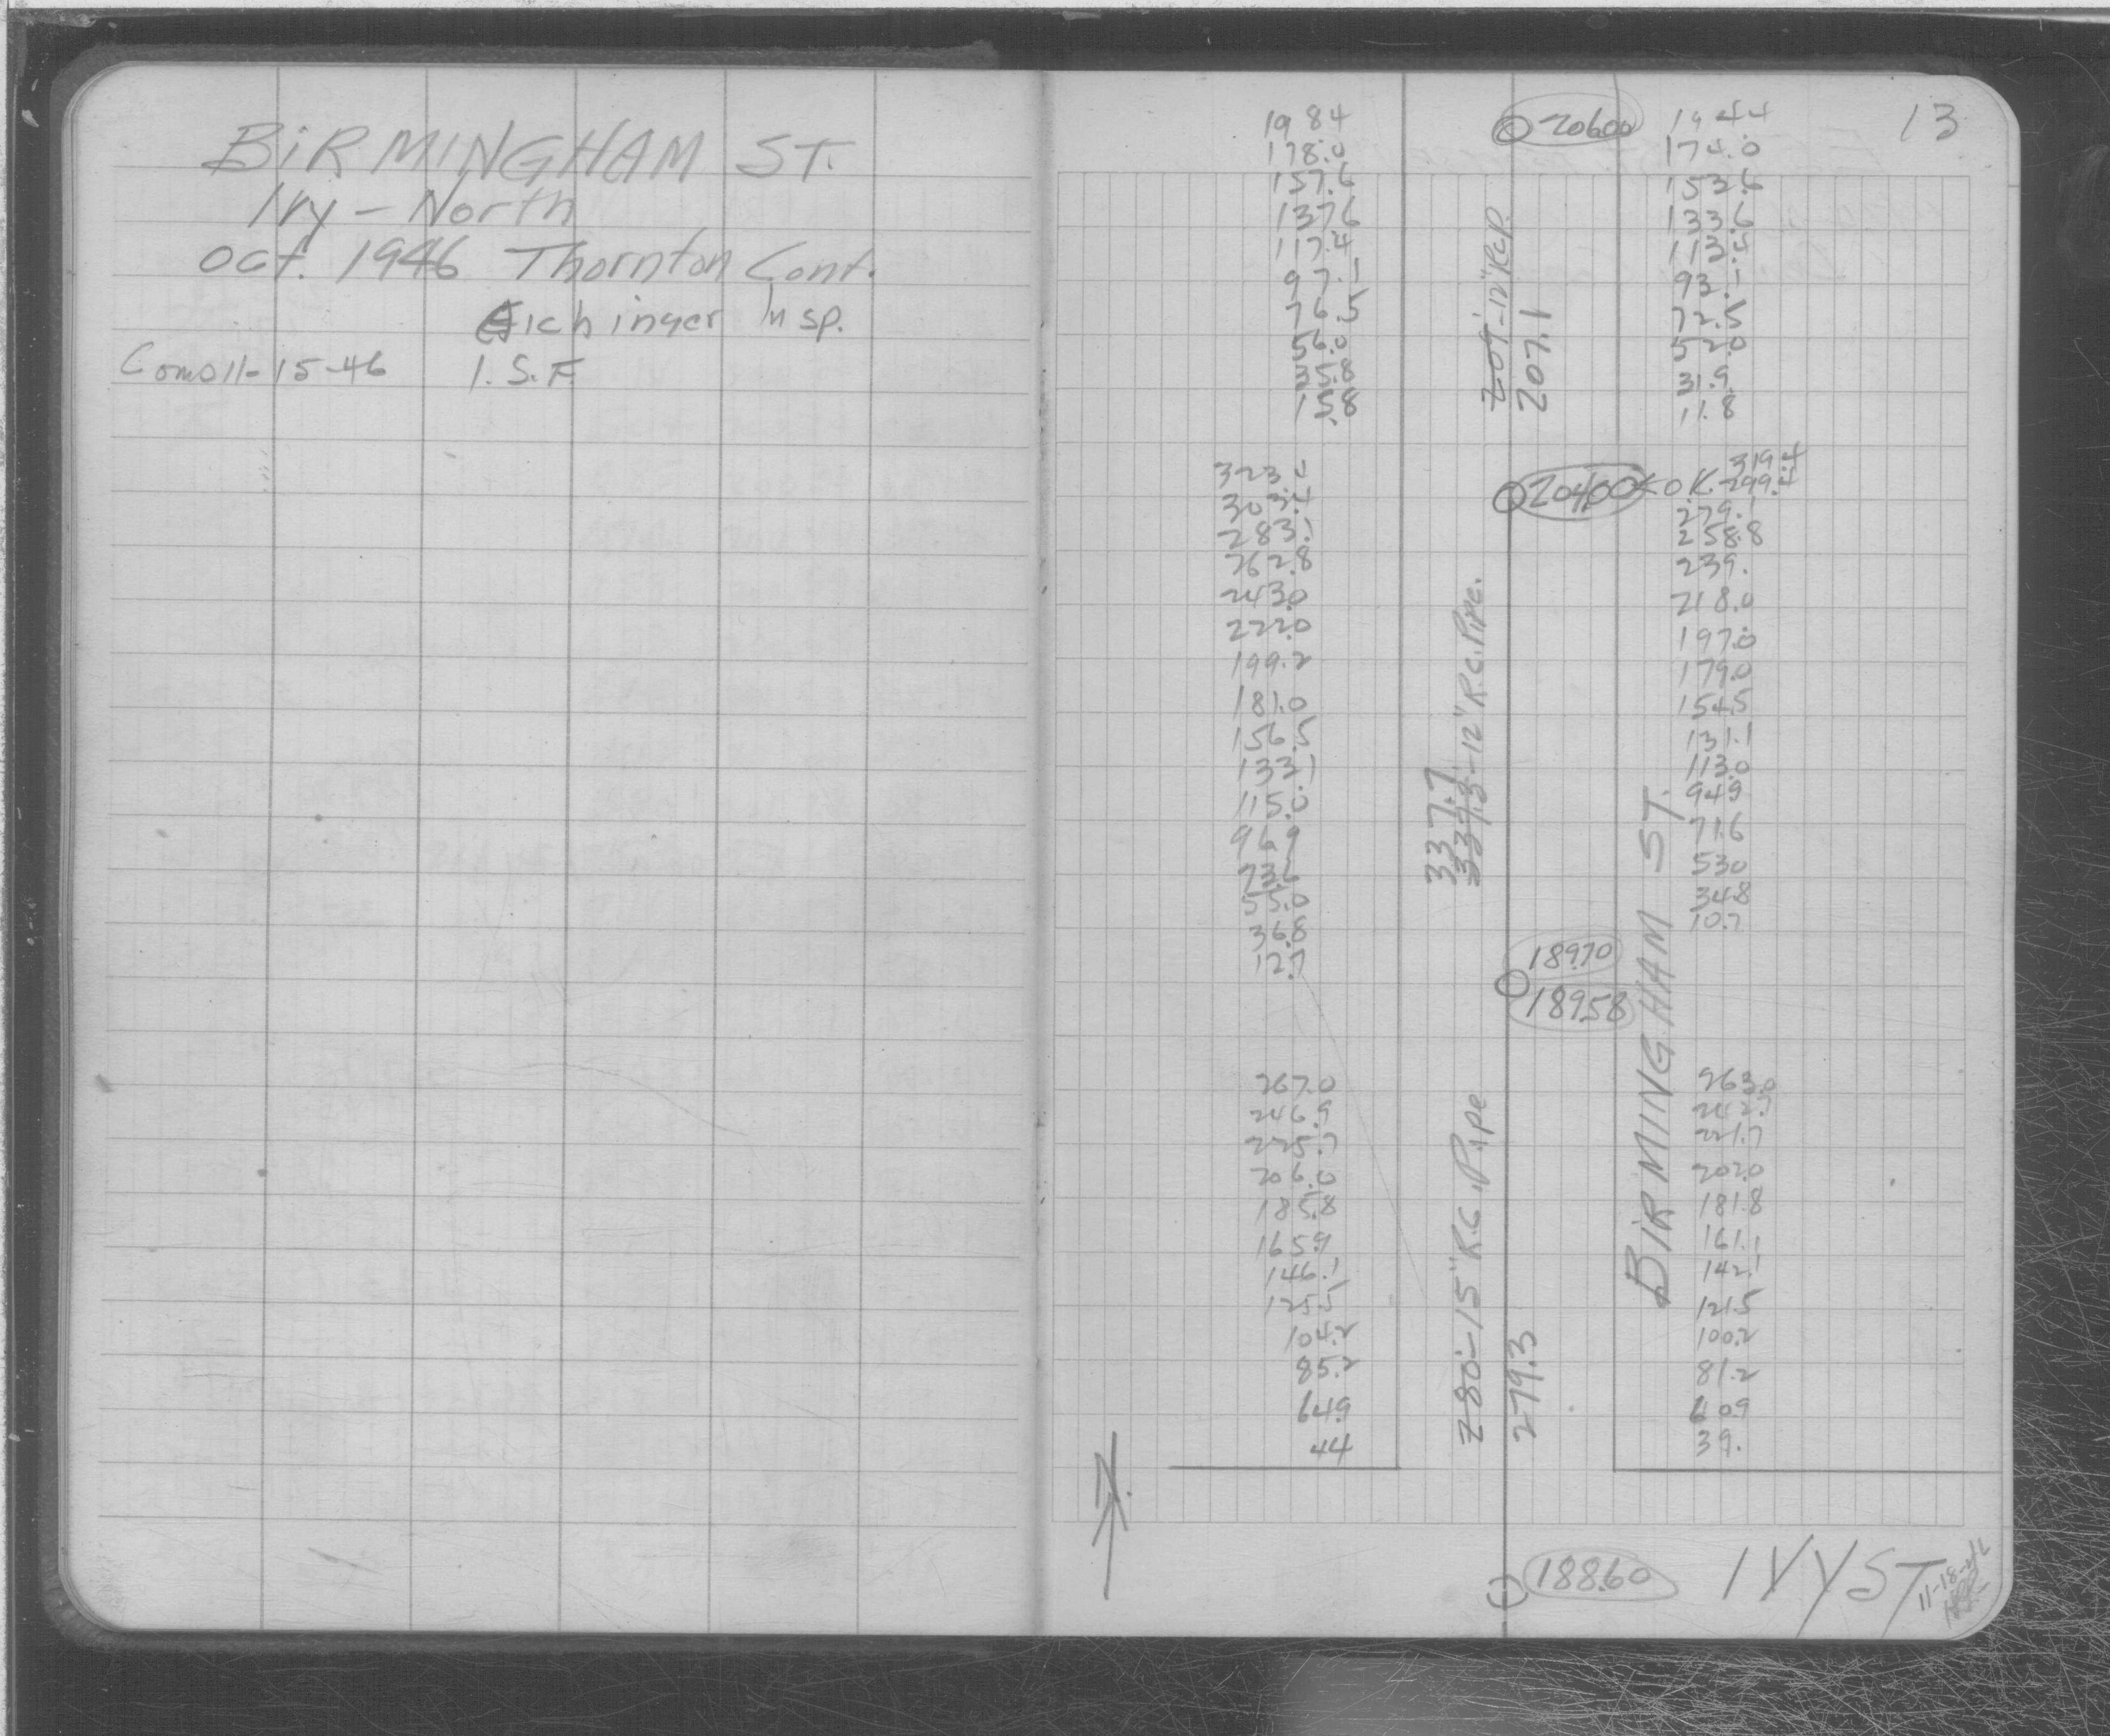 BIRMINGHAM ST.
Ivy - North
Oct. 1946 Thornton Cont.
Eichinger Insp.
Com. 11-15-46 I.S.F.
13
198 4
178.0
157.6
137.6
117.4
97.1
76.5
56.0
35.8
15.8
20600
207'-12" RCP.
207.1
194 4
174.0
153.6
133.6
113.4
93.1
72.5
52.0
31.9
11.8
323.4
303.4
283.1
262.8
243.0
222.0
199.2
181.0
156.5
133.1
115.0
96.9
73.6
55.0
36.8
12.7
20400 < O.K.
337.7
337.3'-12" R.C. Pipe.
319.4
299.4
279.1
258.8
239.
218.0
197.0
179.0
154.5
131.1
113.0
94.9
71.6
53.0
34.8
10.7
189.70
189.58
BIRMINGHAM ST.
267.0
246.9
225.7
206.0
185.8
165.9
146.1
125.5
104.2
85.2
64.9
44
280'-15" R.C. Pipe
279.3
263.0
242.9
221.7
202.0
181.8
161.1
142.1
121.5
100.2
81.2
60.9
39.
188.60
IVY ST